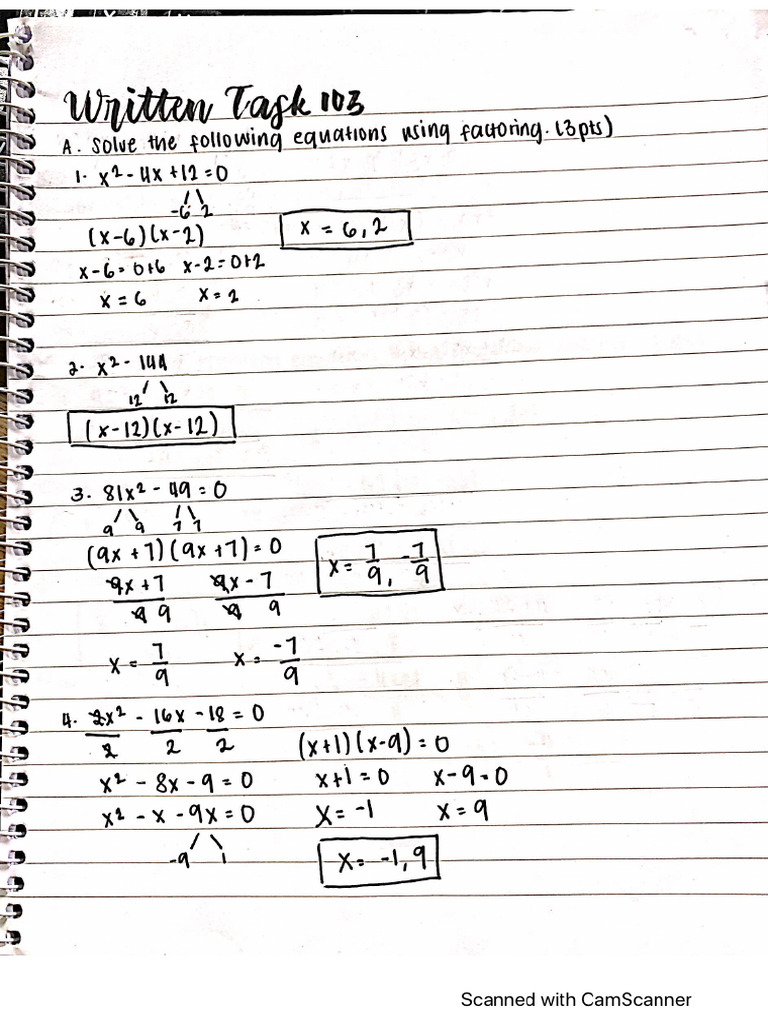 Written Task 103
A. Solve the following equations using factoring. (3pts)
1. x² - 4x + 12 = 0
-6 2
(x-6)(x-2)
x = 6, 2
x-6 = 0+6 x-2 = 0+2
x = 6 x = 2
2. x² - 144
12 12
(x-12)(x-12)
3. 81x² - 49 = 0
9 9 7 7
(9x + 7)(9x + 7) = 0
x = 7/9, -7/9
9x + 7 9x - 7
9 9 9 9
x = 7/9 x = -7/9
4. 2x² - 16x - 18 = 0
2 2 2
(x+1)(x-9) = 0
x² - 8x - 9 = 0 x+1 = 0 x-9 = 0
x² - x - 9x = 0 x = -1 x = 9
-9 1
x = -1, 9
Scanned with CamScanner